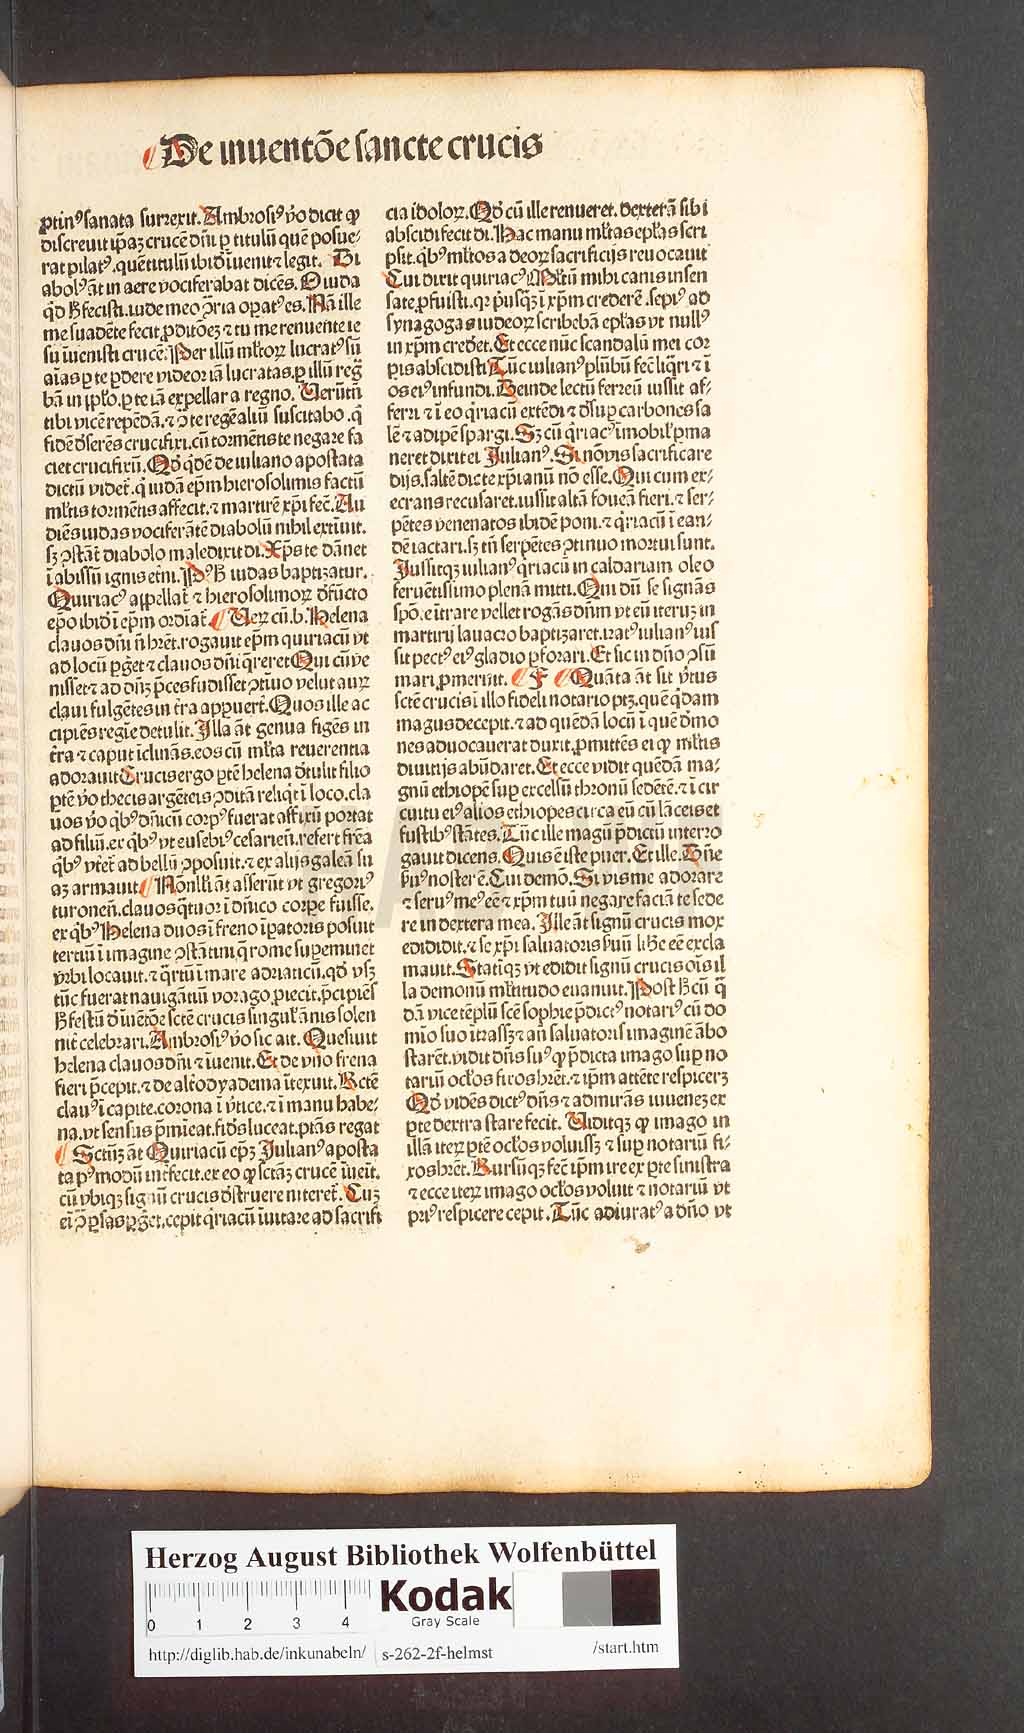 De inuentōe sancte crucis
ꝓtinꝰ sanata surrexit. Ambrosiꝰ v̓o dicit ꝙ
discreuit ip̄aꝫ crucē dn̄i ꝑ titulū quē posue-
rat pilatꝰ. quē titulū ibidē īuenit ⁊ legit. Di
abolꝰ āt in aere vociferabat dicēs. O iuda
qͥd hͦ fecisti. iude meo ꝯ̄ria oꝑatꝰ es. Nā ille
me suadēte fecit ꝓditōeꝫ ⁊ tu me renuente ie
su īuenisti crucē. Per illū ml̓toꝝ lucratꝰ sū
aīas ꝑ te ꝑdere videor iā lucratas. ꝑ illū reḡ
bā in ip̄lo. ꝑ te iā expellar a regno. Uerūtn̄
tibi vicē repēdā. ⁊ ꝯ̄ te regē aliū suscitabo. q̄
fidē d̓serēs crucifixi. cū tormētis te negare fa
ciet crucifixū. Qd̓ qͥdē de iuliano apostata
dictū videt̓. qͥ iudā ep̄m hierosolimis factū
ml̓tis tormētis affecit. ⁊ martirē xp̄i fec̄. Au
diēs iudas vociferātē diabolū nihil extīuit.
sꝫ ꝯstāt̓ diabolo maledixit di. Xp̄s te dānet
ī abissū ignis et̓ni. Pꝰ hͦ iudas baptizatur.
Quiriacꝰ appellat̓ ⁊ hierosolimoꝝ d̓fūcto
ep̄o ibidē ī ep̄m ordīat̓. Ueꝝ cū. b. Helena
clauos dn̄i n̄ hr̄et. rogauit ep̄m quiriacū vt
ad locū ꝑg̓et ⁊ clauos dn̄i q̄reret. Qui cū ve
nisset ⁊ ad dn̄ꝫ p̄ces fudisset ꝯtīuo velut auꝝ
claui fulgētes in t̓ra apꝑuert̄. Quos ille ac
cipiēs regīe detulit. Illa āt genua figēs in
t̓ra ⁊ caput īclinās. eos cū ml̓ta reuerentia
adorauit. Crucis ergo ꝑtē helena d̓tulit filio
ꝑtē v̓o thecis argēteis ꝯditā reliqͥt ī loco. cla
uos v̓o qͥbꝰ dn̄icū corpꝰ fuerat affixū portat
ad filiū. ex qͥbꝰ vt eusebiꝰ cesarien̄. refert frēa
qͥbꝰ vt̓et̓ ad bellū ꝯposuit. ⁊ ex alijs galeā su
aꝫ armauit. Nōnll̓i āt asserūt vt gregoriꝰ
turonen̄. clauos qͣtuor ī dn̄ico corꝑe fuisse.
ex qͥbꝰ Helena duos ī freno īꝑatoris posuit
tertiū ī imagine ꝯstātini. q̄ rome suꝑeminet
vrbi locauit. ⁊ qͣrtū ī mare adriaticū. qd̓ vsqꝫ
tūc fuerat nauigātiū vorago. ꝓiecit. p̄cipiēs
hͦ festū d̓ īuētōe sctē crucis singul̓ ānis solen
nit̓ celebrari. Ambrosiꝰ v̓o sic ait. Quesiuit
helena clauos dn̄i ⁊ īuenit. Et de vno frena
fieri p̄cepit. ⁊ de alt̓o dyadema ītexuit. Rctē
clauꝰ ī capite. corona ī v̓tice. ⁊ ī manu habe-
na. vt sensus p̄mīeat. fid̓s luceat. ptās regat
Sctūꝫ āt Quiriacū ep̄ꝫ Julianꝰ aposta
ta pꝰ modū int̓fecit. ex eo ꝙ sctāꝫ crucē īueīt.
cū vbiqꝫ signū crucis d̓struere nitēret̓. Cuꝫ
ei ꝯ̄ ꝑsas ꝑg̓et. cepit qͥriacū īuitare ad sacrifi
cia idoloꝝ. Qd̓ cū ille renueret. dexterā sibi
abscidi fecit di. Hac manu ml̓tas epl̓as scri
psit. qͥbꝰ ml̓tos a deoꝝ sacrificijs reuocauit
Cui dixit quiriacꝰ. Ml̓tū mihi canis insen
sate ꝓfuisti. qꝛ pͥusqꝫ ī xp̄m crederē. sepiꝰ ad
synagogas iudeoꝝ scribebā epl̓as vt nullꝰ
in xp̄m cred̓et. Et ecce nūc scandalū mei cor
pis abscidisti. Tūc iulianꝰ plūbū fec̄ liq̄ri ⁊ ī
os eiꝰ infundi. Deinde lectū ferreū iussit af-
ferri ⁊ ī eo qͥriacū extēdi ⁊ d̓suꝑ carbones sa
lē ⁊ adipē spargi. Sꝫ cū qͥriacꝰ īmobil̓ ꝑma
neret dixit ei Julianꝰ. Si nō vis sacrificare
dijs. saltē dic te xp̄ianū nō esse. Qui cum ex-
ecrans recusaret. iussit altā foueā fieri. ⁊ ser-
pētes venenatos ibidē poni. ⁊ qͥriacū ī ean-
dē iactari. sꝫ tn̄ serpētes ꝯtinuo mortui sunt.
Jussitqꝫ iulianꝰ qͥriacū in caldariam oleo
feruētissimo plenā mitti. Qui dū se signās
spō. eītrare vellet rogās dn̄m vt eū iteruꝫ in
martirij lauacro baptizaret. iratꝰ iulianꝰ ius
sit pectꝰ eiꝰ gladio ꝑforari. Et sic in dn̄o ꝯsū
mari ꝓmeruit. F Quāta āt sit v̓tus
sctē crucis ī illo fideli notario ptꝫ. quē qͥdam
magus decepit. ⁊ ad quēdā locū ī quē d̓mo
nes aduocauerat duxit. ꝓmittēs ei ꝙ ml̓tis
diuitijs abūdaret. Et ecce vidit quēdā ma-
gnū ethiopē suꝑ excelsū thronū sedētē. ⁊ ī cir
cuitu eiꝰ alios ethiopes circa eū cū lāceis et
fustibꝰ stātes. Tūc ille magū p̄dictū interro
gauit dicens. Quis ē iste puer. Et ille. Dn̄e
suꝰ noster ē. Cui demō. Si vis me adorare
⁊ seruꝰ meꝰ eē ⁊ xp̄m tuū negare faciā te sede
re in dextera mea. Ille āt signū crucis mox
edidit. ⁊ se xp̄i saluatoris s̓uū lib̓e eē excla
mauit. Statiqꝫ vt edidit signū crucis oīs il
la demonū ml̓titudo euanuit. Post hͦ cū qͥ
dā vice tēplū scē sophie p̄dictꝰ notariꝰ cū do
mīo suo ītrassꝫ ⁊ an̄ saluatoris imaginē ābo
starēt. vidit dn̄s suꝰ ꝙ p̄dicta imago suꝑ no
tariū ocl̓os fixos hr̄et. ⁊ ip̄m attēte respicerꝫ
Qd̓ vidēs dictꝰ dn̄s ⁊ admirās iuuenē ex
ꝑte dextra stare fecit. Uiditqꝫ ꝙ imago in
illā iteꝝ ꝑtē ocl̓os voluissꝫ ⁊ suꝑ notariū fi-
xos hr̄et. Rursūqꝫ fec̄ ip̄m ire ex ꝑte sinistra
⁊ ecce iteꝝ imago ocl̓os voluit ⁊ notariū vt
priꝰ respicere cepit. Tūc adiuratꝰ a dn̄o vt
Herzog August Bibliothek Wolfenbüttel
0 1 2 3 4
Kodak
Gray Scale
http://diglib.hab.de/inkunabeln/ s-262-2f-helmst /start.htm
HAB